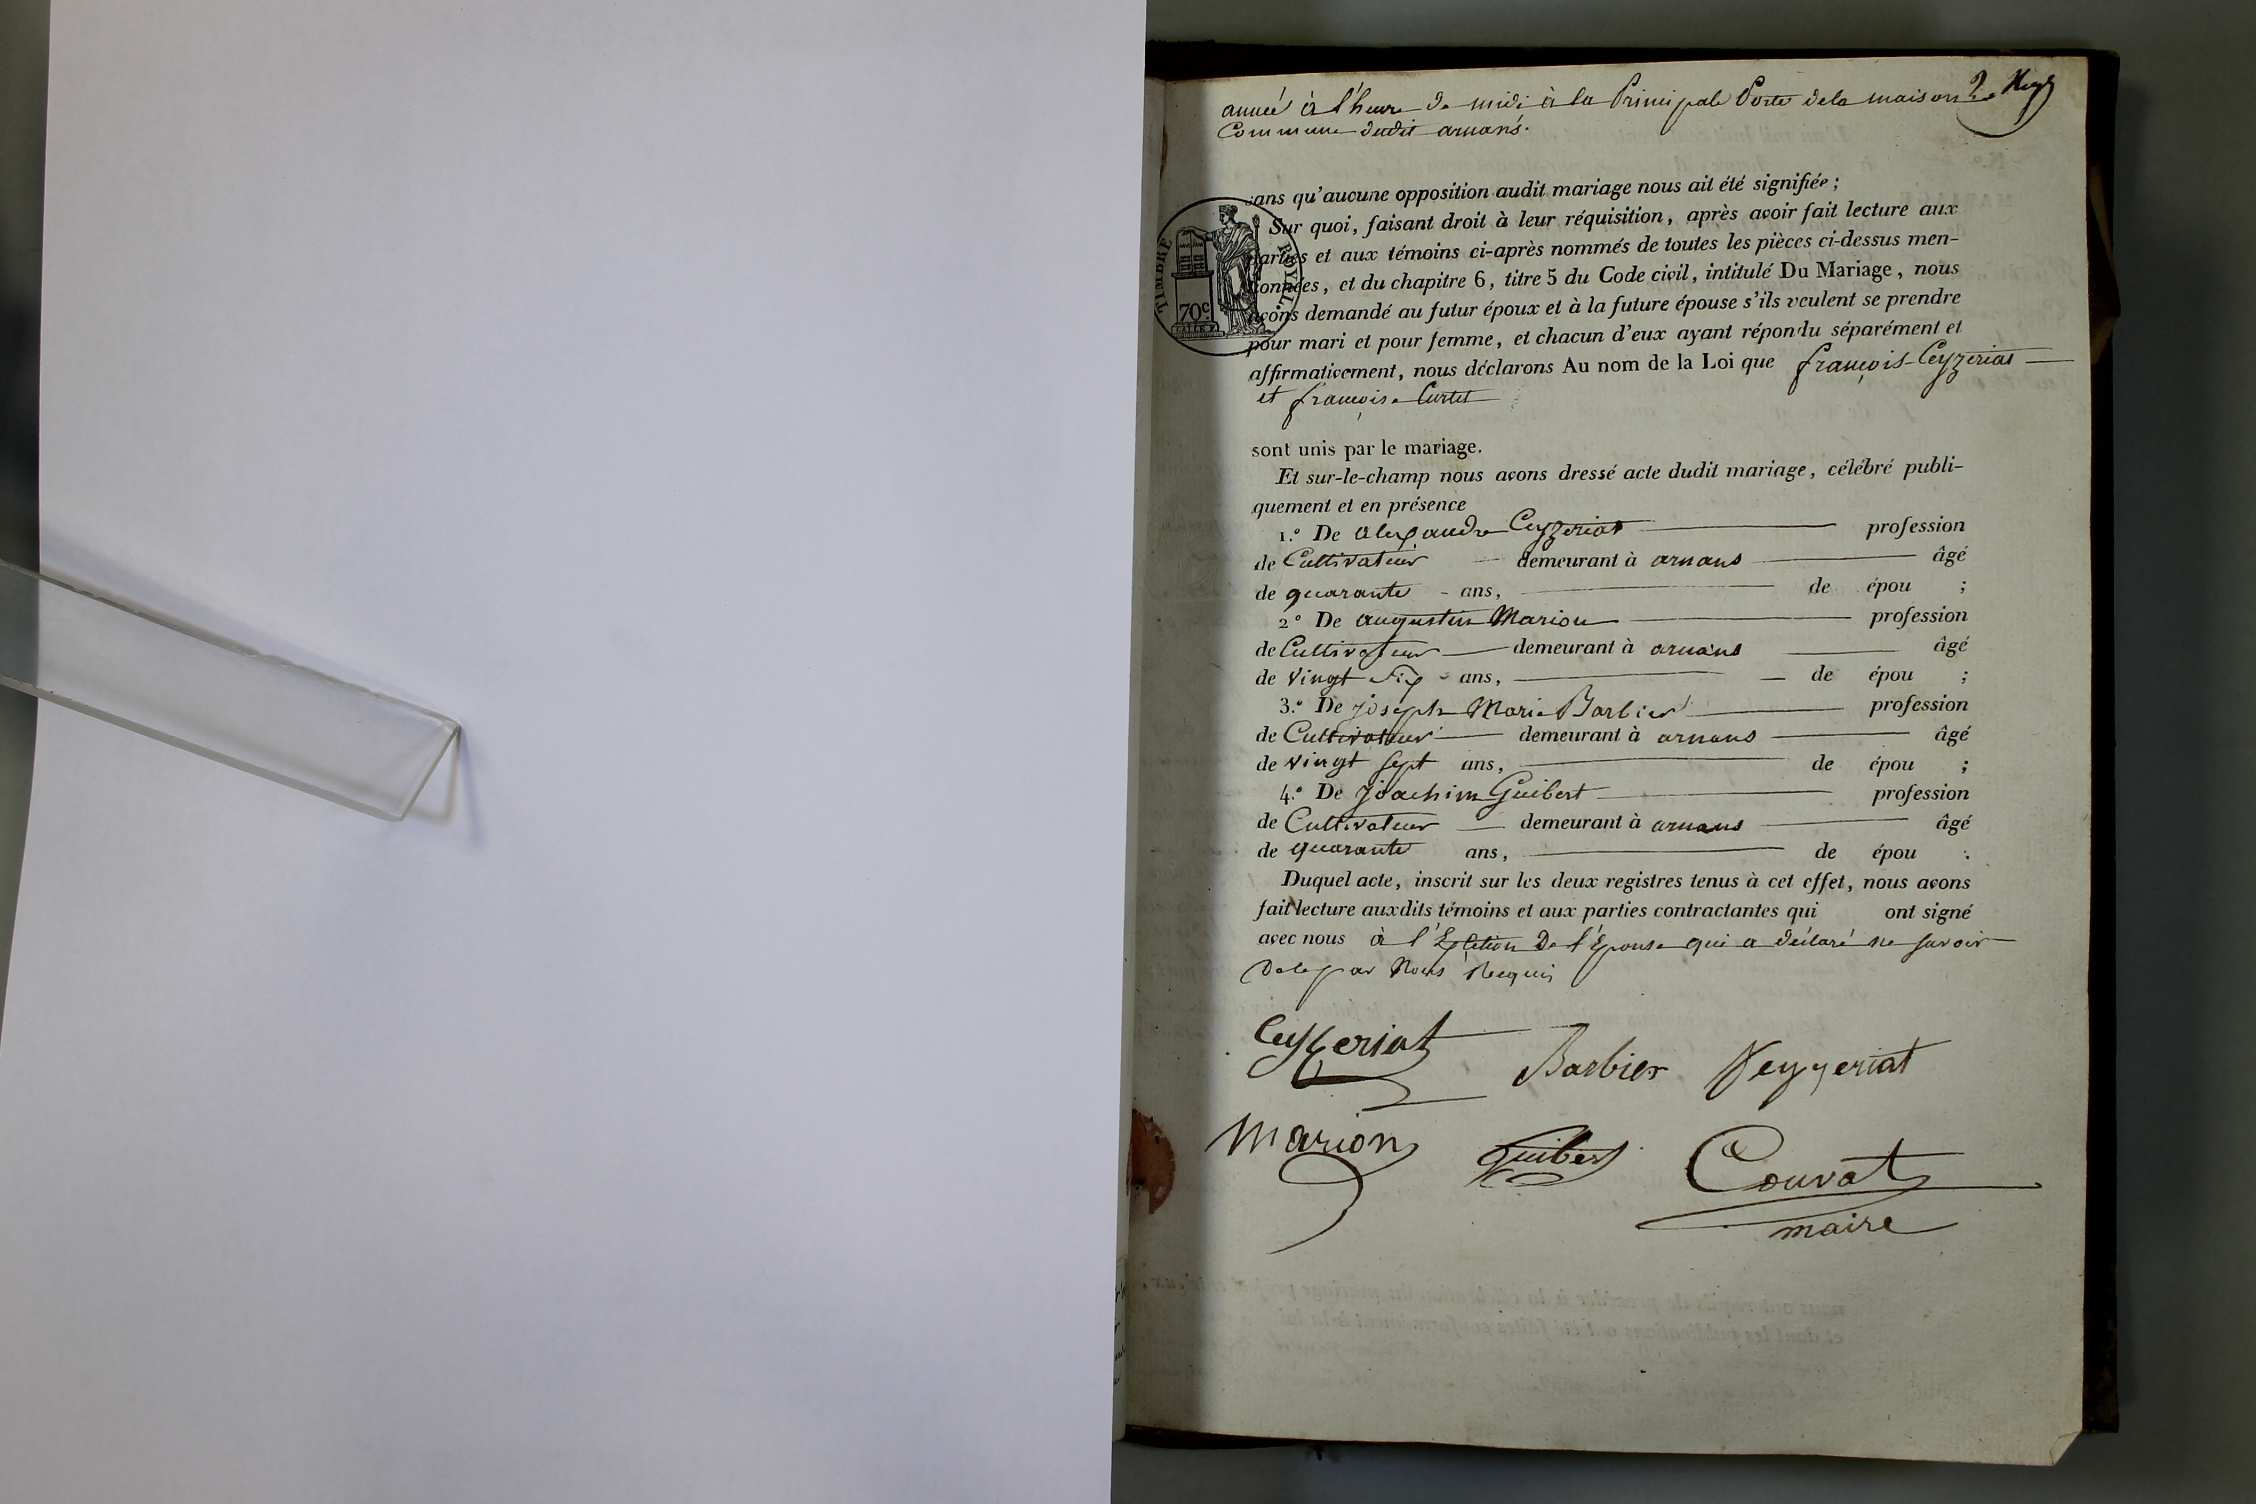 année à l'heure de midi à la Principale Porte dela maison
Commune dudit arnans.
sans qu'aucune opposition audit mariage nous ait été signifiée ;
Sur quoi, faisant droit à leur réquisition, après avoir fait lecture aux
parties et aux témoins ci-après nommés de toutes les pièces ci-dessus men-
tionnées, et du chapitre 6, titre 5 du Code civil, intitulé Du Mariage, nous
avons demandé au futur époux et à la future épouse s'ils veulent se prendre
pour mari et pour femme, et chacun d'eux ayant répondu séparément et
affirmativement, nous déclarons Au nom de la Loi que françois Ceyzeriat
et françoise Curtet
TIMBRE ROYAL.
70c.
sont unis par le mariage.
Et sur-le-champ nous avons dressé acte dudit mariage, célébré publi-
quement et en présence
1.º De alexandre Ceyzeriat profession
de Cultivateur demeurant à arnans âgé
de quarante ans, de épou ;
2º De augustin Marion profession
de Cultivateur demeurant à arnans âgé
de vingt six ans, de épou ;
3.º De joseph Marie Barbier profession
de Cultivateur demeurant à arnans âgé
de vingt sept ans, de épou ;
4.º De joachim Guibert profession
de Cultivateur demeurant à arnans âgé
de quarante ans, de épou .
Duquel acte, inscrit sur les deux registres tenus à cet effet, nous avons
fait lecture auxdits témoins et aux parties contractantes qui ont signé
avec nous à l'Exeption De l'Epouse qui a déclaré ne savoir
par Nous Requis
Ceyzeriat
Barbier Ceyzeriat
Marion Guibert Couvat
maire